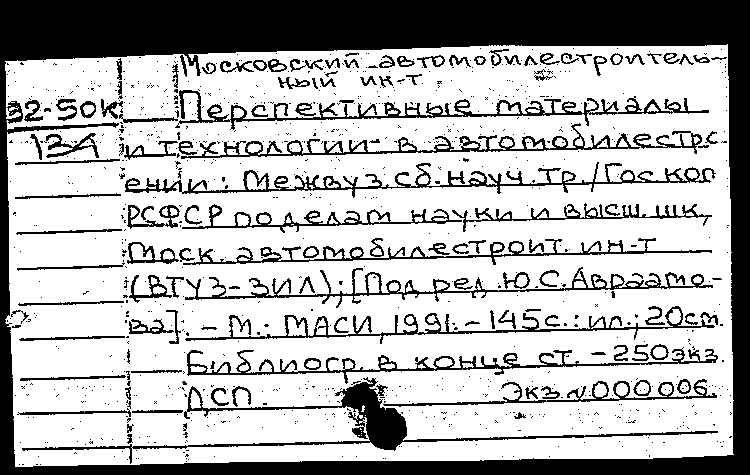 Московский автомобилестроитель-
ный ин-т.
92-50к Перспективные материалы
и технологии в автомобилестро-
ении: Межвуз. сб. науч. тр./Гос ком
РСФСР по делам науки и высш. шк.,
Моск. автомобилестроит. ин-т
(ВТУЗ-ЗИЛ); [Под ред. Ю.С. Авраамо-
ва]. - М.: МАСИ, 1991. - 145с.: ил.; 20см.
Библиогр. в конце ст. - 250экз.
ДСП. Экз. №000006.